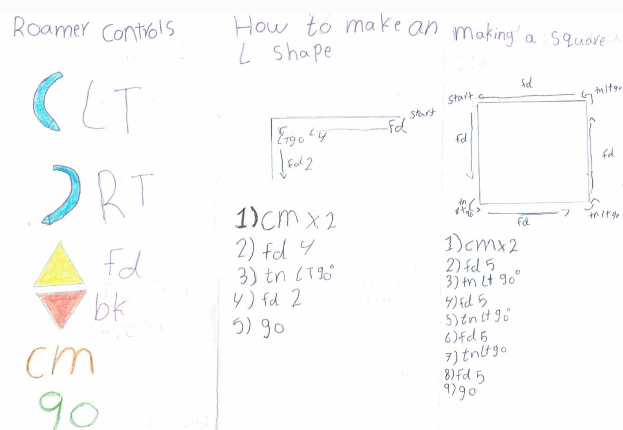 Roamer Controls
LT
RT
fd
bk
cm
go
How to make an
L shape
start
fd 4
LT90
fd 2
1) cm x 2
2) fd 4
3) tn LT90°
4) fd 2
5) go
making a square
start
fd
tn lt 90
fd
fd
tn lt 90
fd
tn lt 90
1) cm x 2
2) fd 5
3) tn lt 90°
4) fd 5
5) tn lt 90°
6) fd 5
7) tn lt 90
8) fd 5
9) go